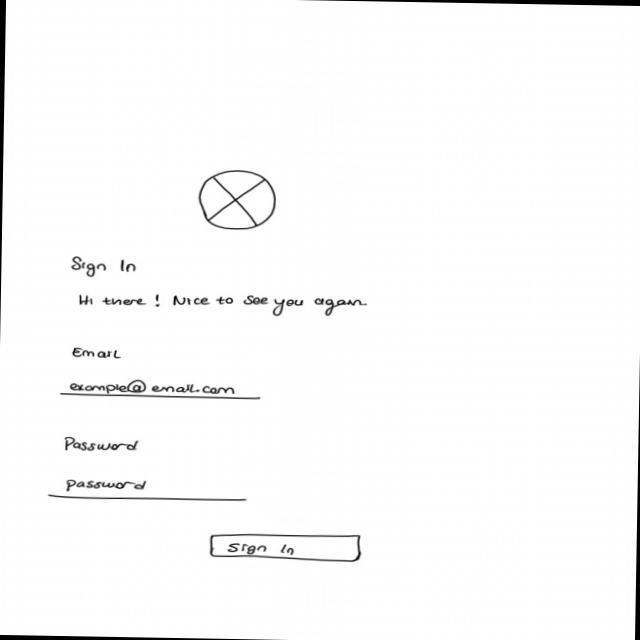 Sign In
Hi there! Nice to see you again.
Email
example@email.com
Password
password
Sign In